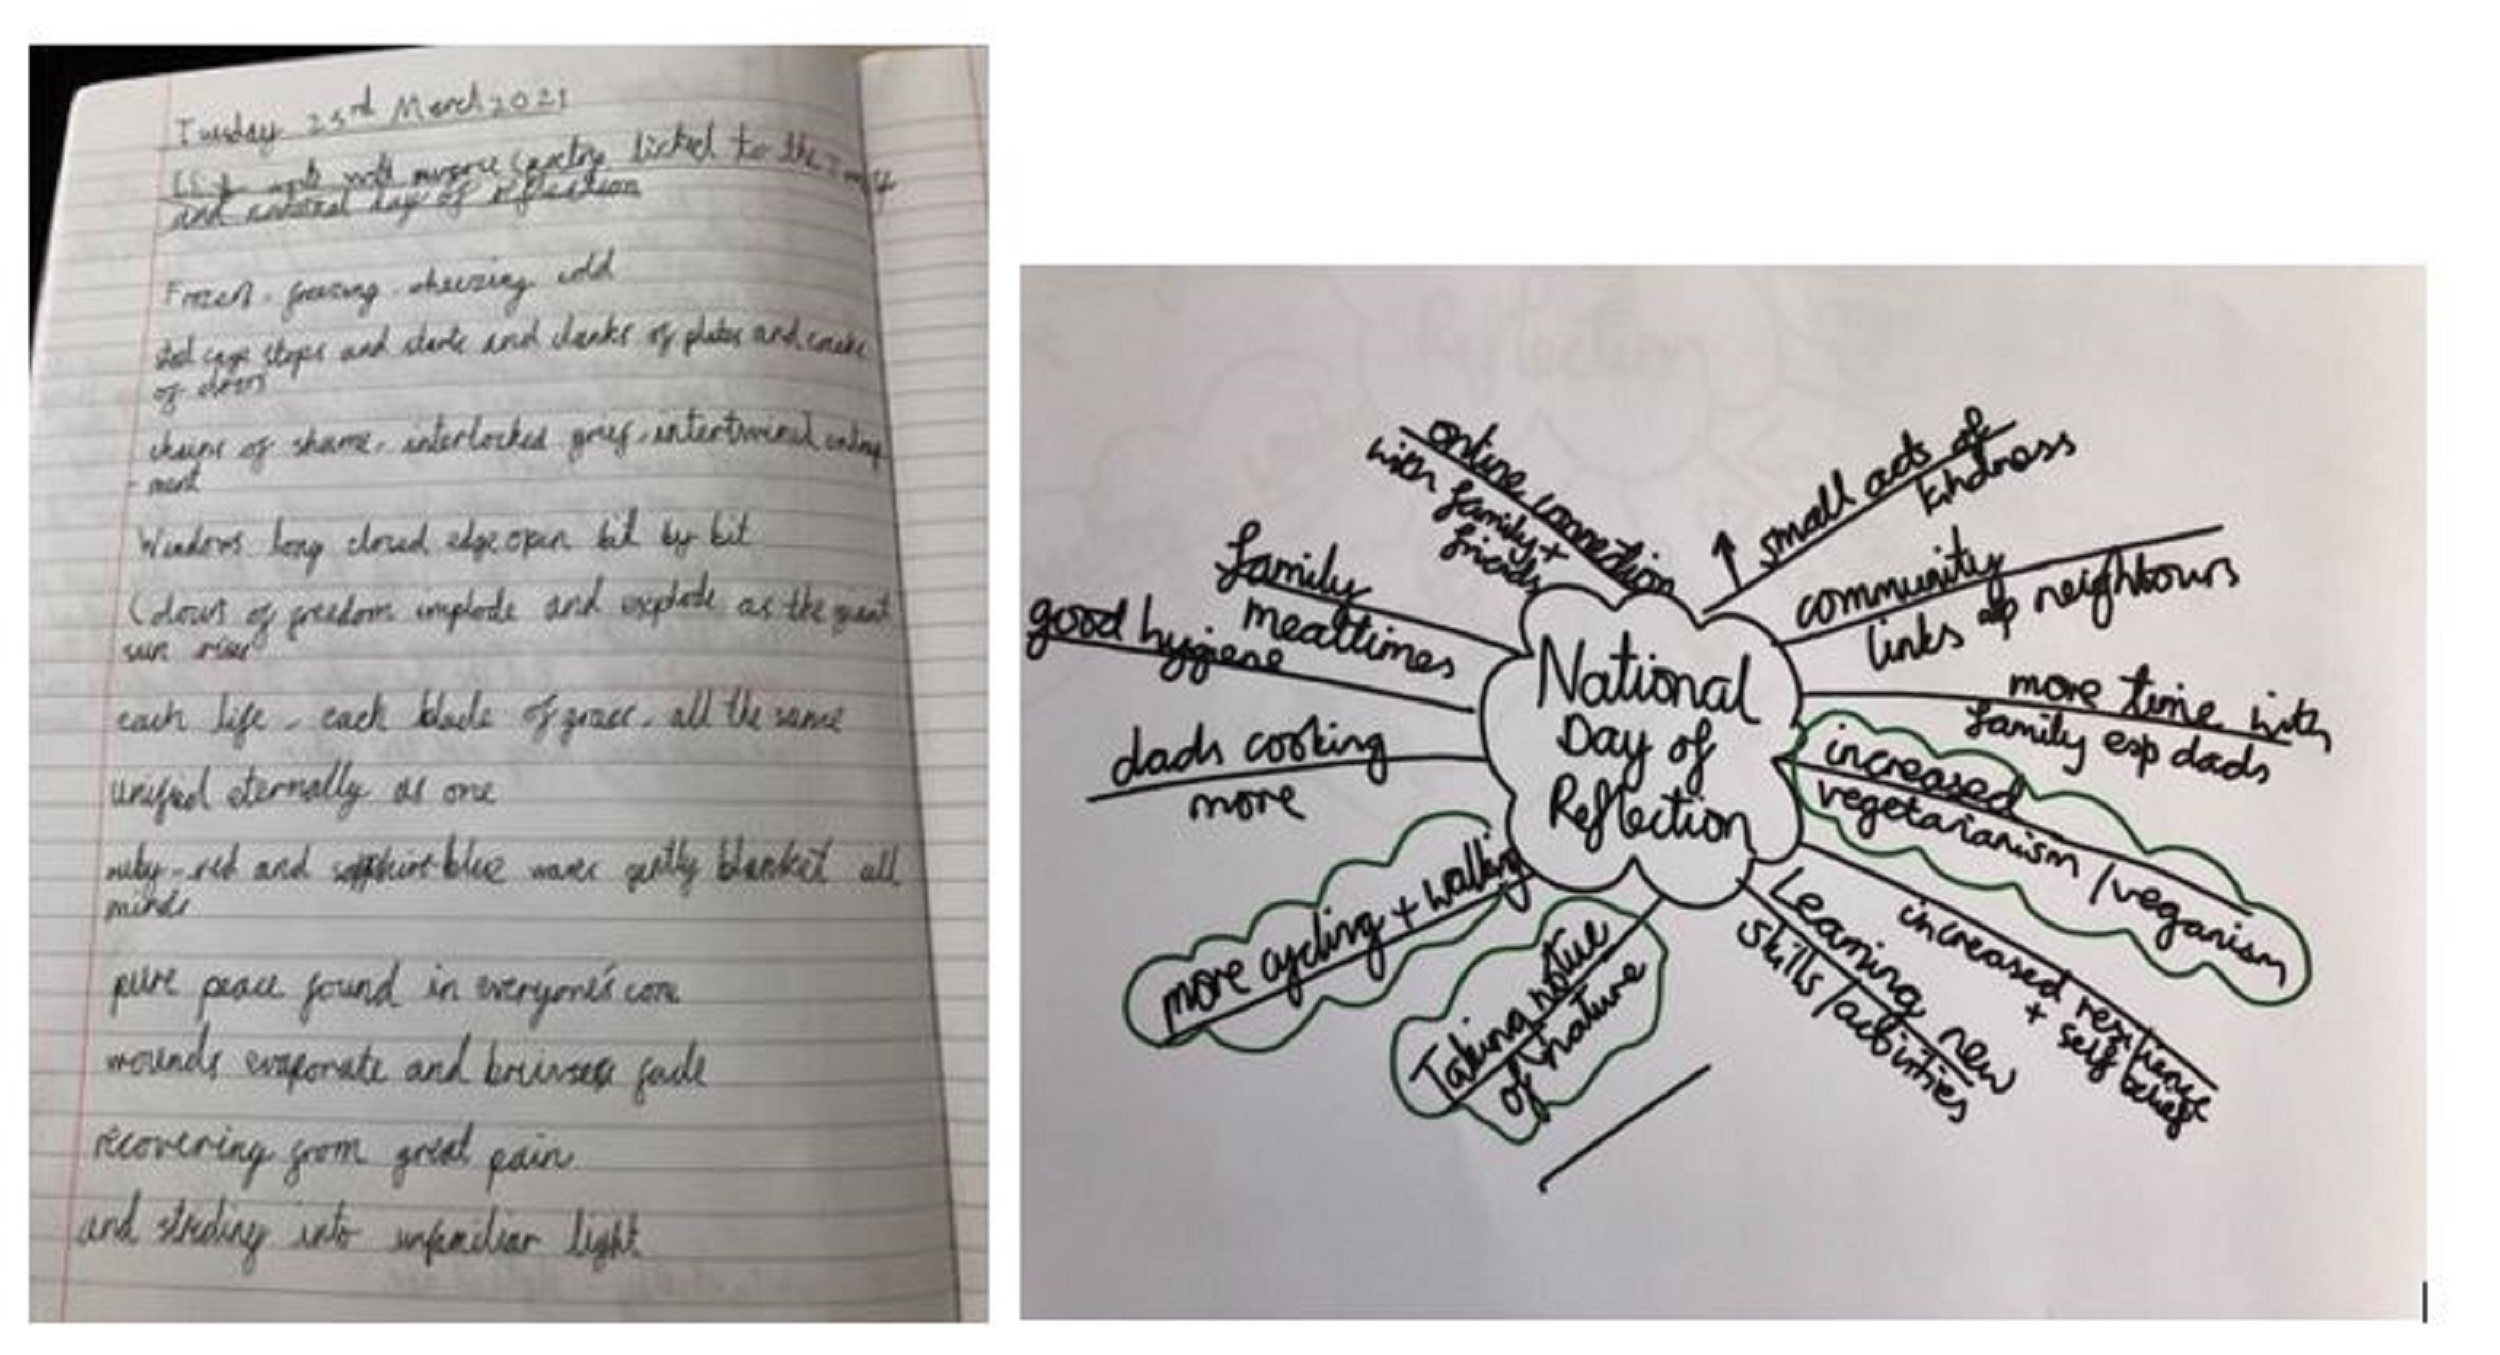 Tuesday 23rd March 2021
to the
and national day of reflection
Frozen - freezing - wheezing cold
steel cage stops and starts and clanks of plates and
of doors
chains of shame, interlocked grief, intertwined
- ment
Windows long closed edge open bit by bit
Colours of freedom implode and explode as the giant
sun
each life - each blade of grass - all the same
unified eternally as one
ruby-red and sapphire-blue waves gently blanket all
minds
pure peace found in everyone's core
wounds evaporate and fade
recovering from great pain
and striding into unfamiliar light
National
Day of
Reflection
online connection
with family +
friends
small acts of
kindness
community
links neighbours
more time with
family esp dads
increased
vegetarianism / veganism
increased resilience
+ self belief
Learning new
skills / activities
Taking notice
of nature
more cycling + walking
dads cooking
more
good hygiene
family
mealtimes